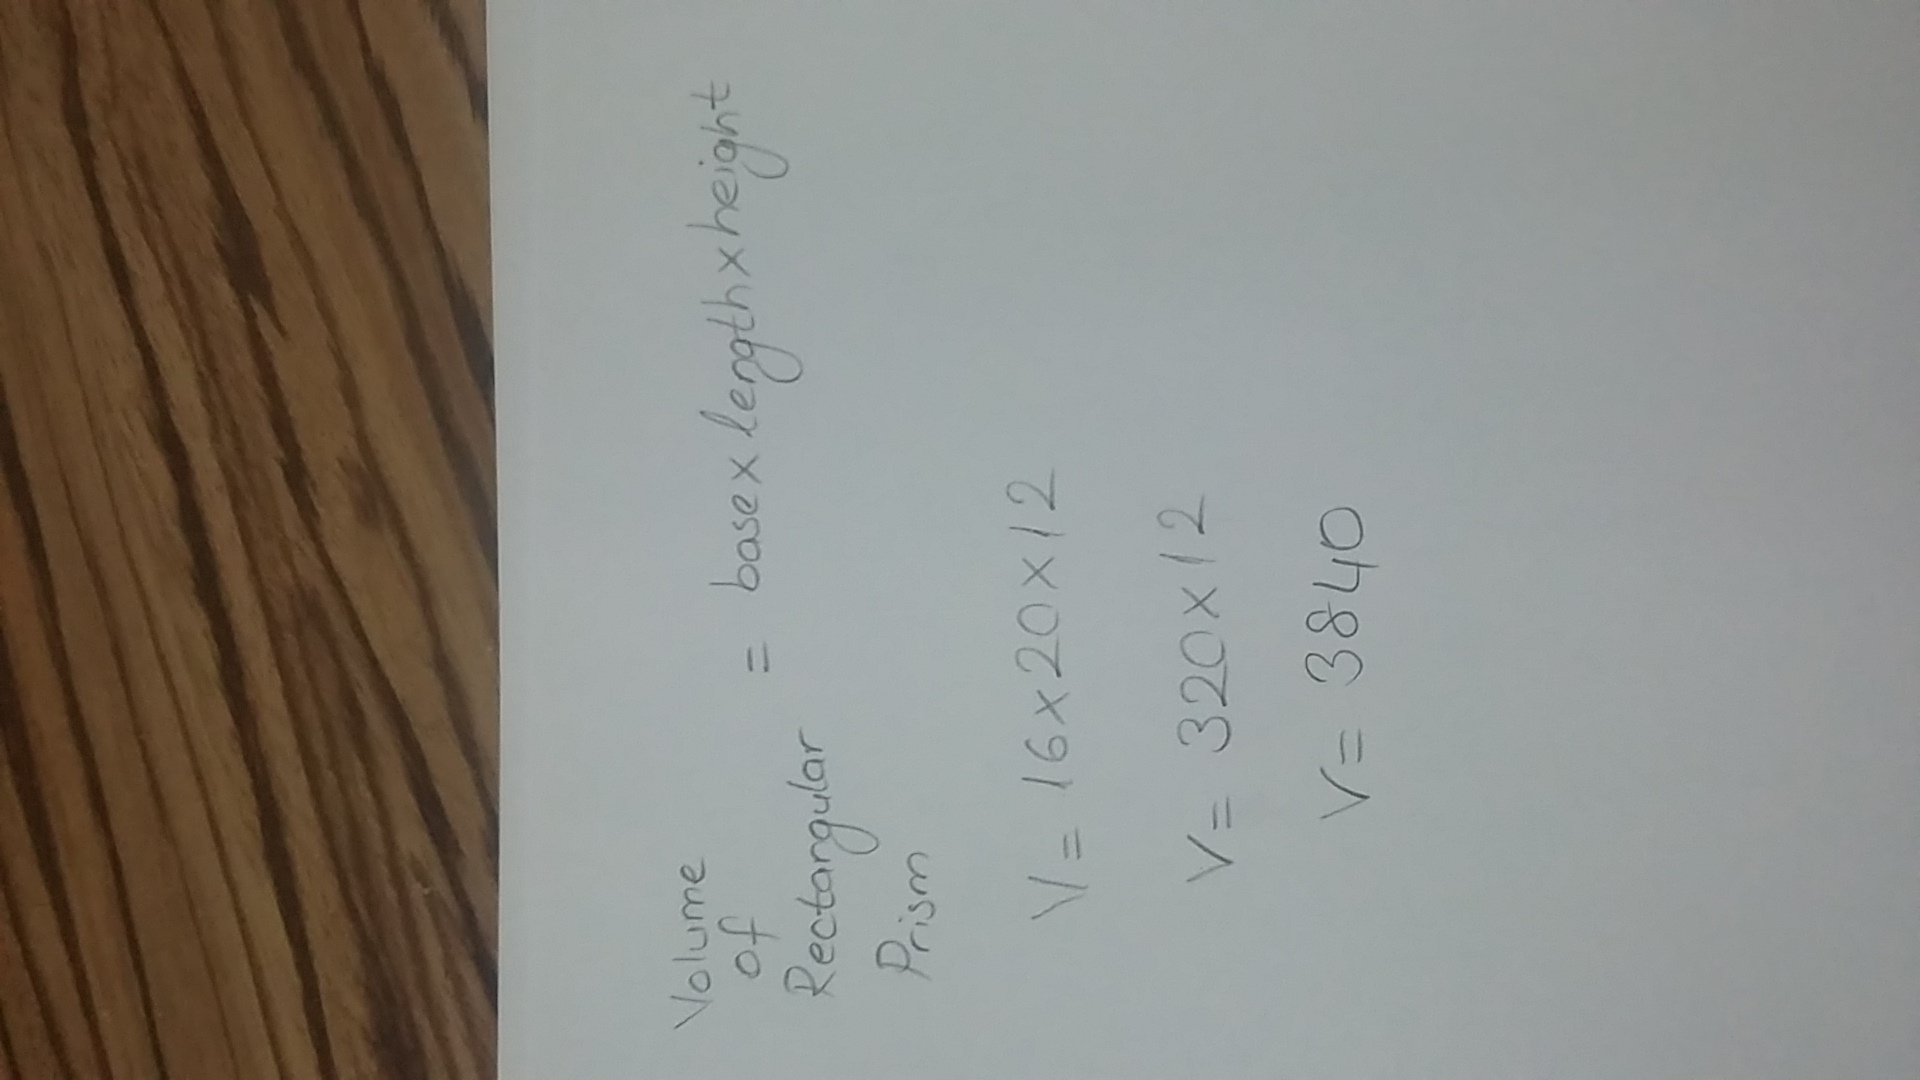 Volume
of
Rectangular = base x length x height
Prism
V = 16 x 20 x 12
V = 320 x 12
V = 3840